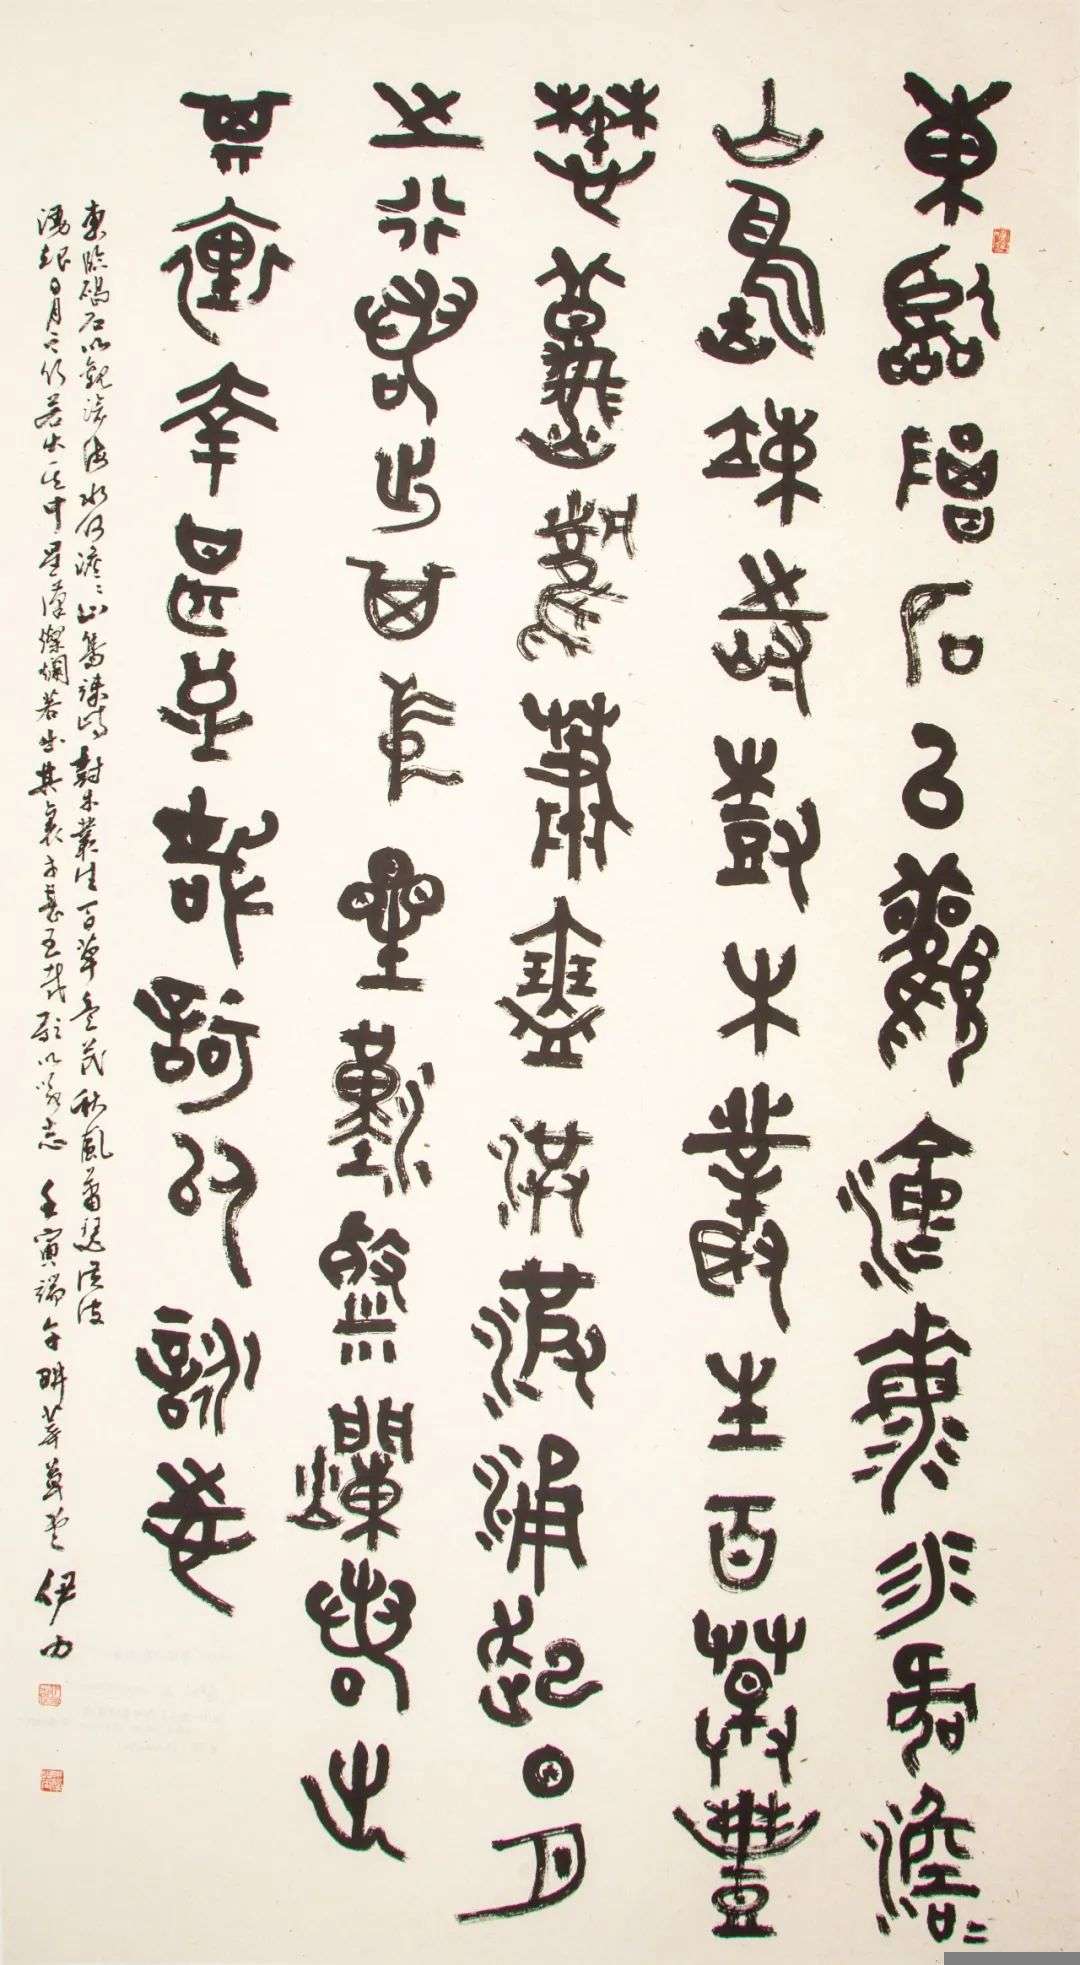 東臨碣石以觀滄海水何澹〻
山島竦峙樹木叢生百草豐
茂秋風蕭瑟洪波涌起日月
之行若出其中星漢燦爛若出
其裏幸甚至哉歌以詠志
東臨碣石以觀滄海水何澹〻山島竦峙樹木叢生百草豐茂秋風蕭瑟洪波
涌起日月之行若出其中星漢燦爛若出其裏幸甚至哉歌以詠志 壬寅端午畊莘草堂 伊力